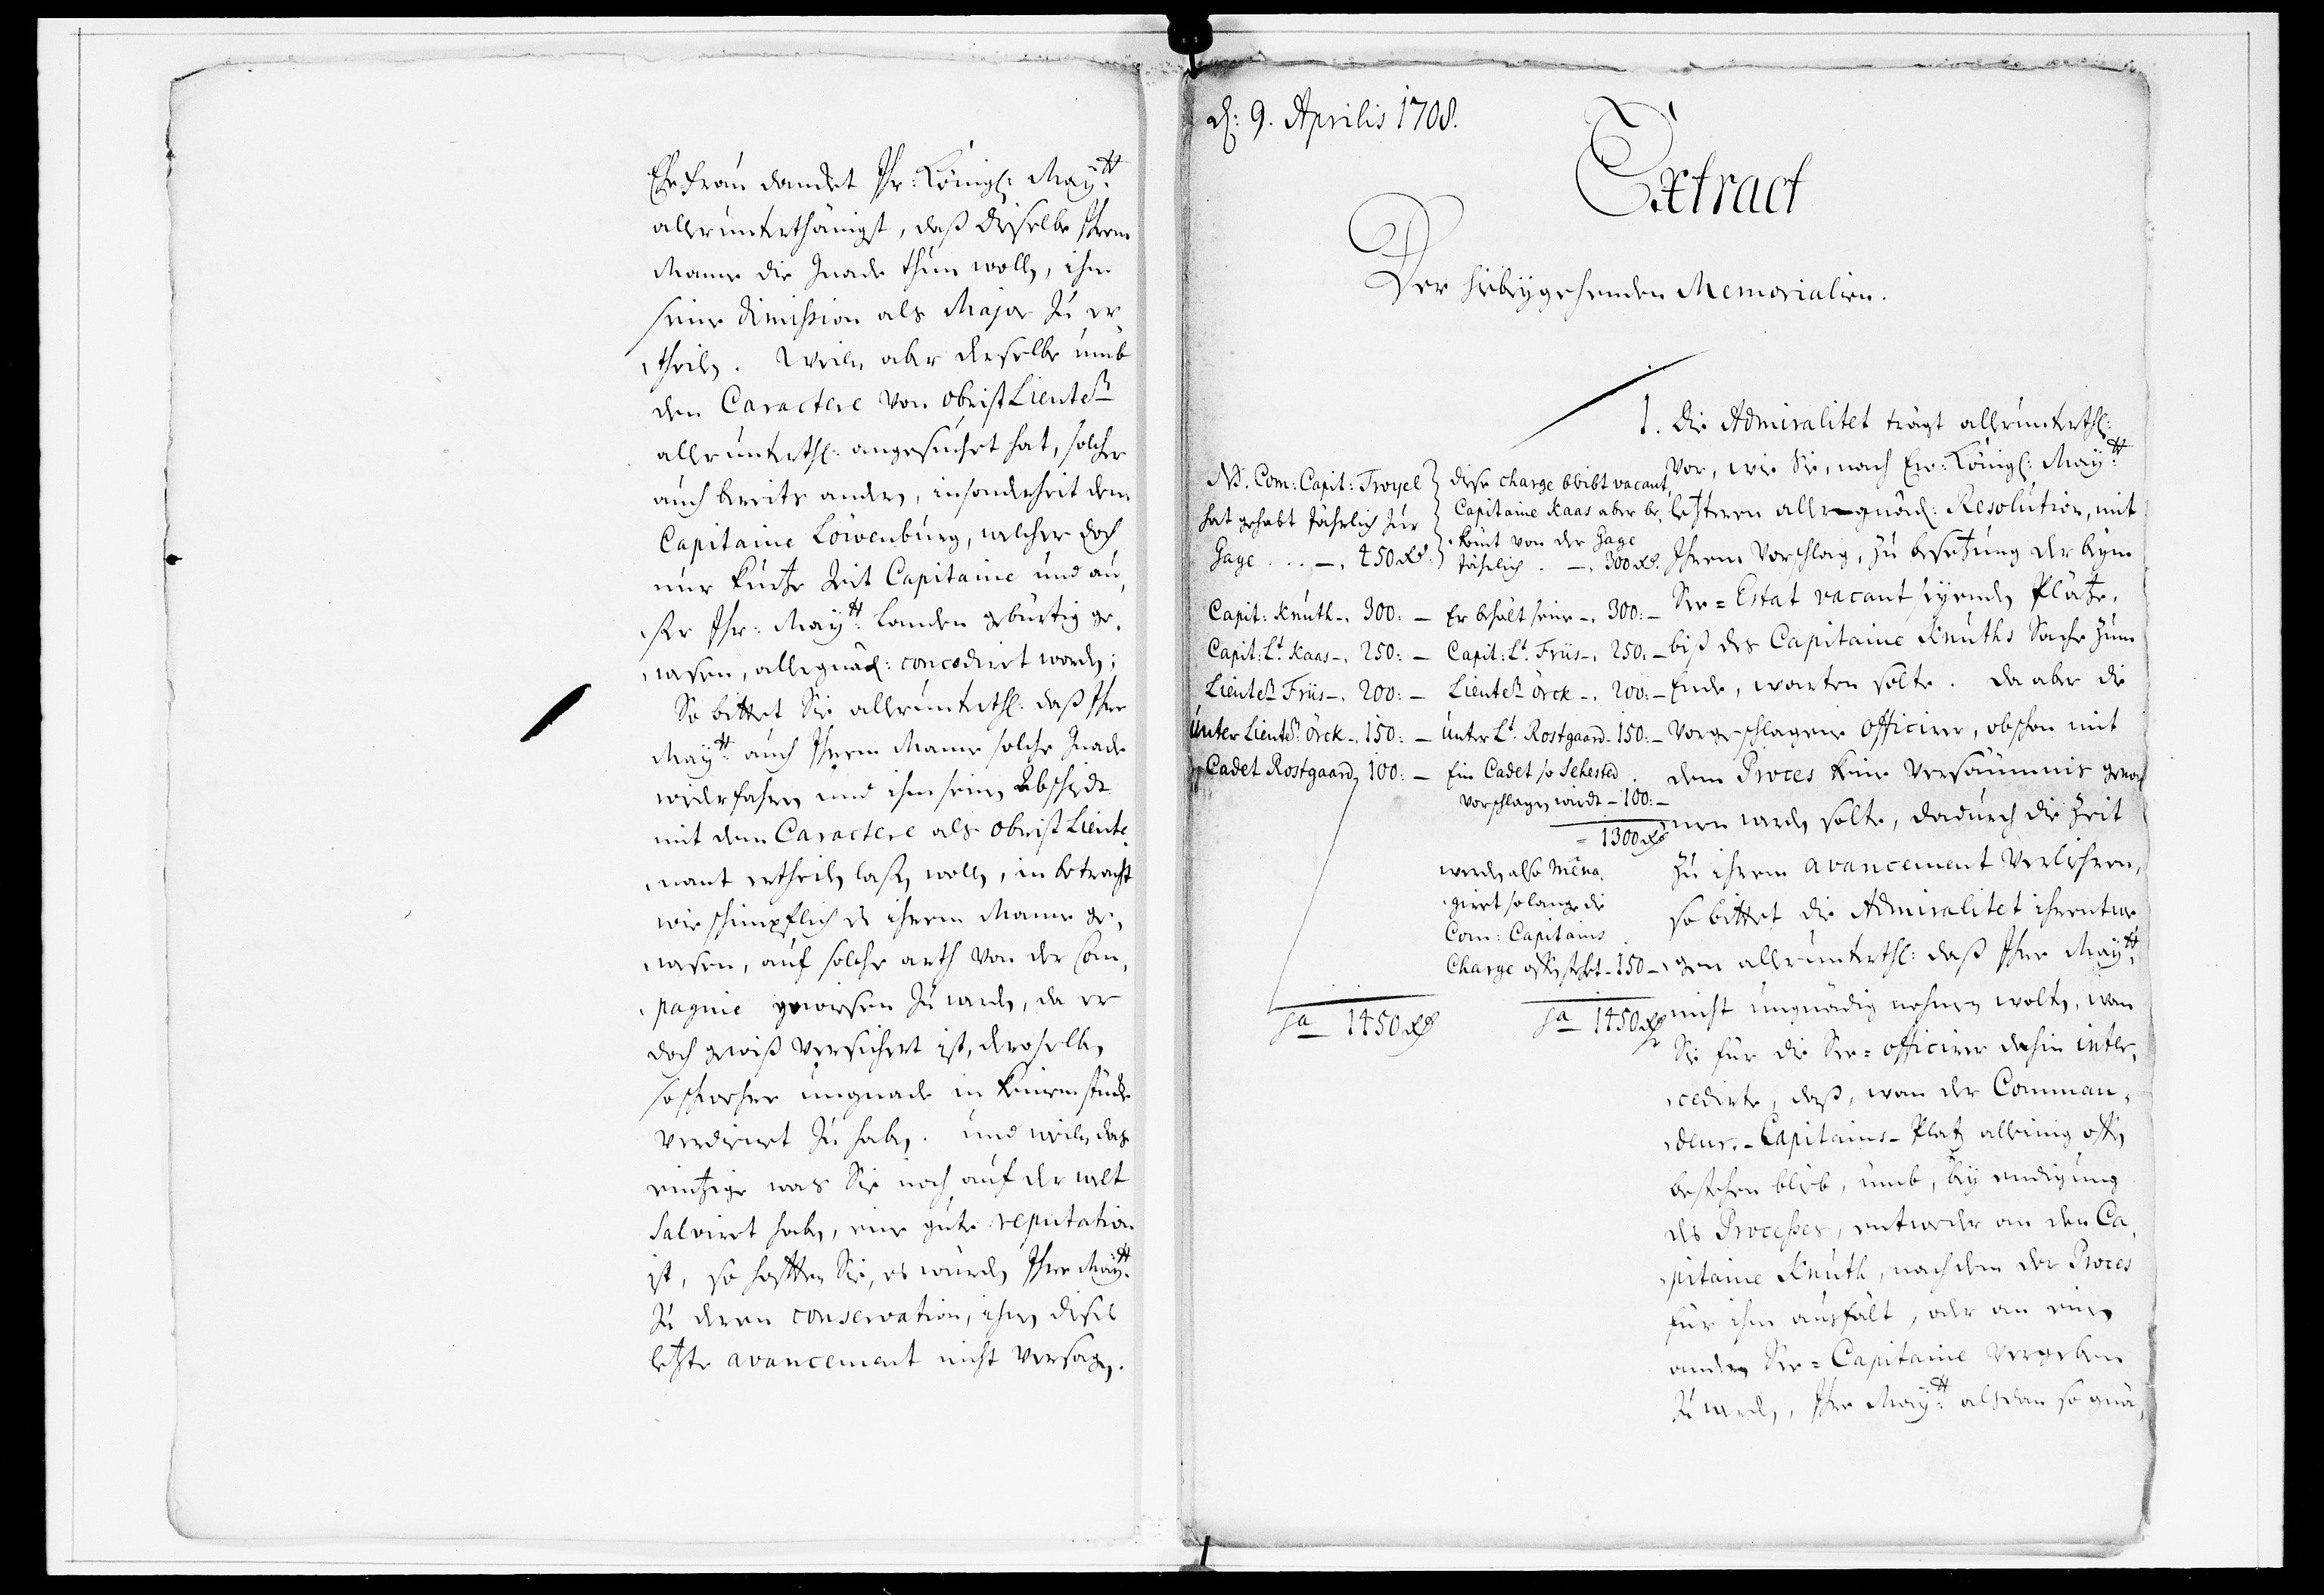 Ehefrau dancket Ihr: Königl: Maÿ:tt
allerunterthänigst, daß dieselbe Ihrem
Manne die Gnade thun wollen, ihm
seine dimission als Major zu er„
„theilen. Weilen aber derselbe umb
den Caractere von ObristLieutent
allerunterthl: angesuchet hat, solcher
auch bereits andern, insonderheit dem
Capitaine Löwenburg, welcher doch
nur kurtze Zeit Capitaine und au„
„ßer Ihr: Maÿ:tt Landen gebürtig ge„
„wesen, allergnäd: concediret worden;
So bittet Sie allerunterthl: daß Ihre
Maÿ:tt auch Ihrem Manne solche Gnade
wiederfahren und ihm seinen Abscheidt
mit dem Caractere als Obrist Lieute„
„nant ertheilen laßen wollen, in betracht
wie schimpflich es ihrem Manne ge„
„wesen, auf solche arth von der Com„
„pagnie gewiesen zu werden, da er
doch gewiß versichert ist, deroselben
so hoher ungnade in keinem stücke
verdienet zu haben. Und weilen das
eintzige was Sie noch auf der welt
salviret haben, eine gute reputation
ist, so hoffen Sie, es würden Ihre Maÿ:tt
zu deren conservation, ihnen dieses
letzte avancement nicht versagen.
d: 9. Aprilis 1708.
Extract
Der hiebeÿgehenden Memorialien.
1. Die Admiralitet trägt allerunterthl:
vor, wie Sie, nach Ew: Königl: Maÿ:tt
letzteren allergnäd: Resolution, mit
Ihrem Vorschlag, zu besetzung der beÿm
See=Estat vacant seÿenden Plätze,
biß des Capitaine Knuths Sache zum
Ende, warten solte. Da aber die
Vorgeschlagene Officirer, obschon mit
dem Proces keine Versäumnis genom
„men werden solte, dadurch die Zeit
zu ihrem avancement Verliehren,
so bittet die Admiralitet ihrentwe
„gen allerunterthl: daß Ihre Maÿ:tt
nicht ungnädig nehmen wolten, wan
Sie für die See=Officirer dahin inter„
„cedirte, daß, wan der Comman„
„deur-Capitains-Platz alleinig offen
bestehen blieb, umb, beÿ endigung
des Processes, entweder an den Ca„
„pitaine Knuth, nachdem der Proces
für ihm ausfält, oder an einen
andern See=Capitaine vergeben
zu werden, Ihre Maÿ:tt alsdan so gnä„
NB. Com: Capit: Troyel
hat gehabt Jährlich zur
Gage . . . —. 450 Rd.
Capit: Knuth —. 300: —
Capit: Lt. Kaas —. 250: —
Lieutent Friis —. 200: —
Unter Lieutent: Örck —. 150: —
Cadet Rostgaard, 100: —
Sa — 1450 Rd
diese charge bleibt vacant,
Capitaine Kaas aber be„
„kömt von der Gage
Jährlich . —. 300 Rd.
Er behält seine —. 300: —
Capit: Lt. Friis —. 250. —
Lieutent Örck —. 200: —
Unter Lt. Rostgaard — 150: —
Ein Cadet so Sehested
vorschlagen wirdt — 100: —
= 1300 Rd
werden also ména„
„girt solange die
Com: Capitains
Charge offen stehet — 150 —
Sa — 1450 Rd